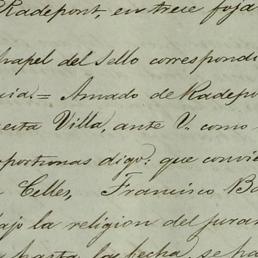 Radepont, en trece foja
papel del sello correspondi
cia.= Amado de Radepo
esta Villa, ante V. como
oportunas digo: que convie
Celles, Francisco Ba
bajo la religion del juram
hasta la fecha, se ha